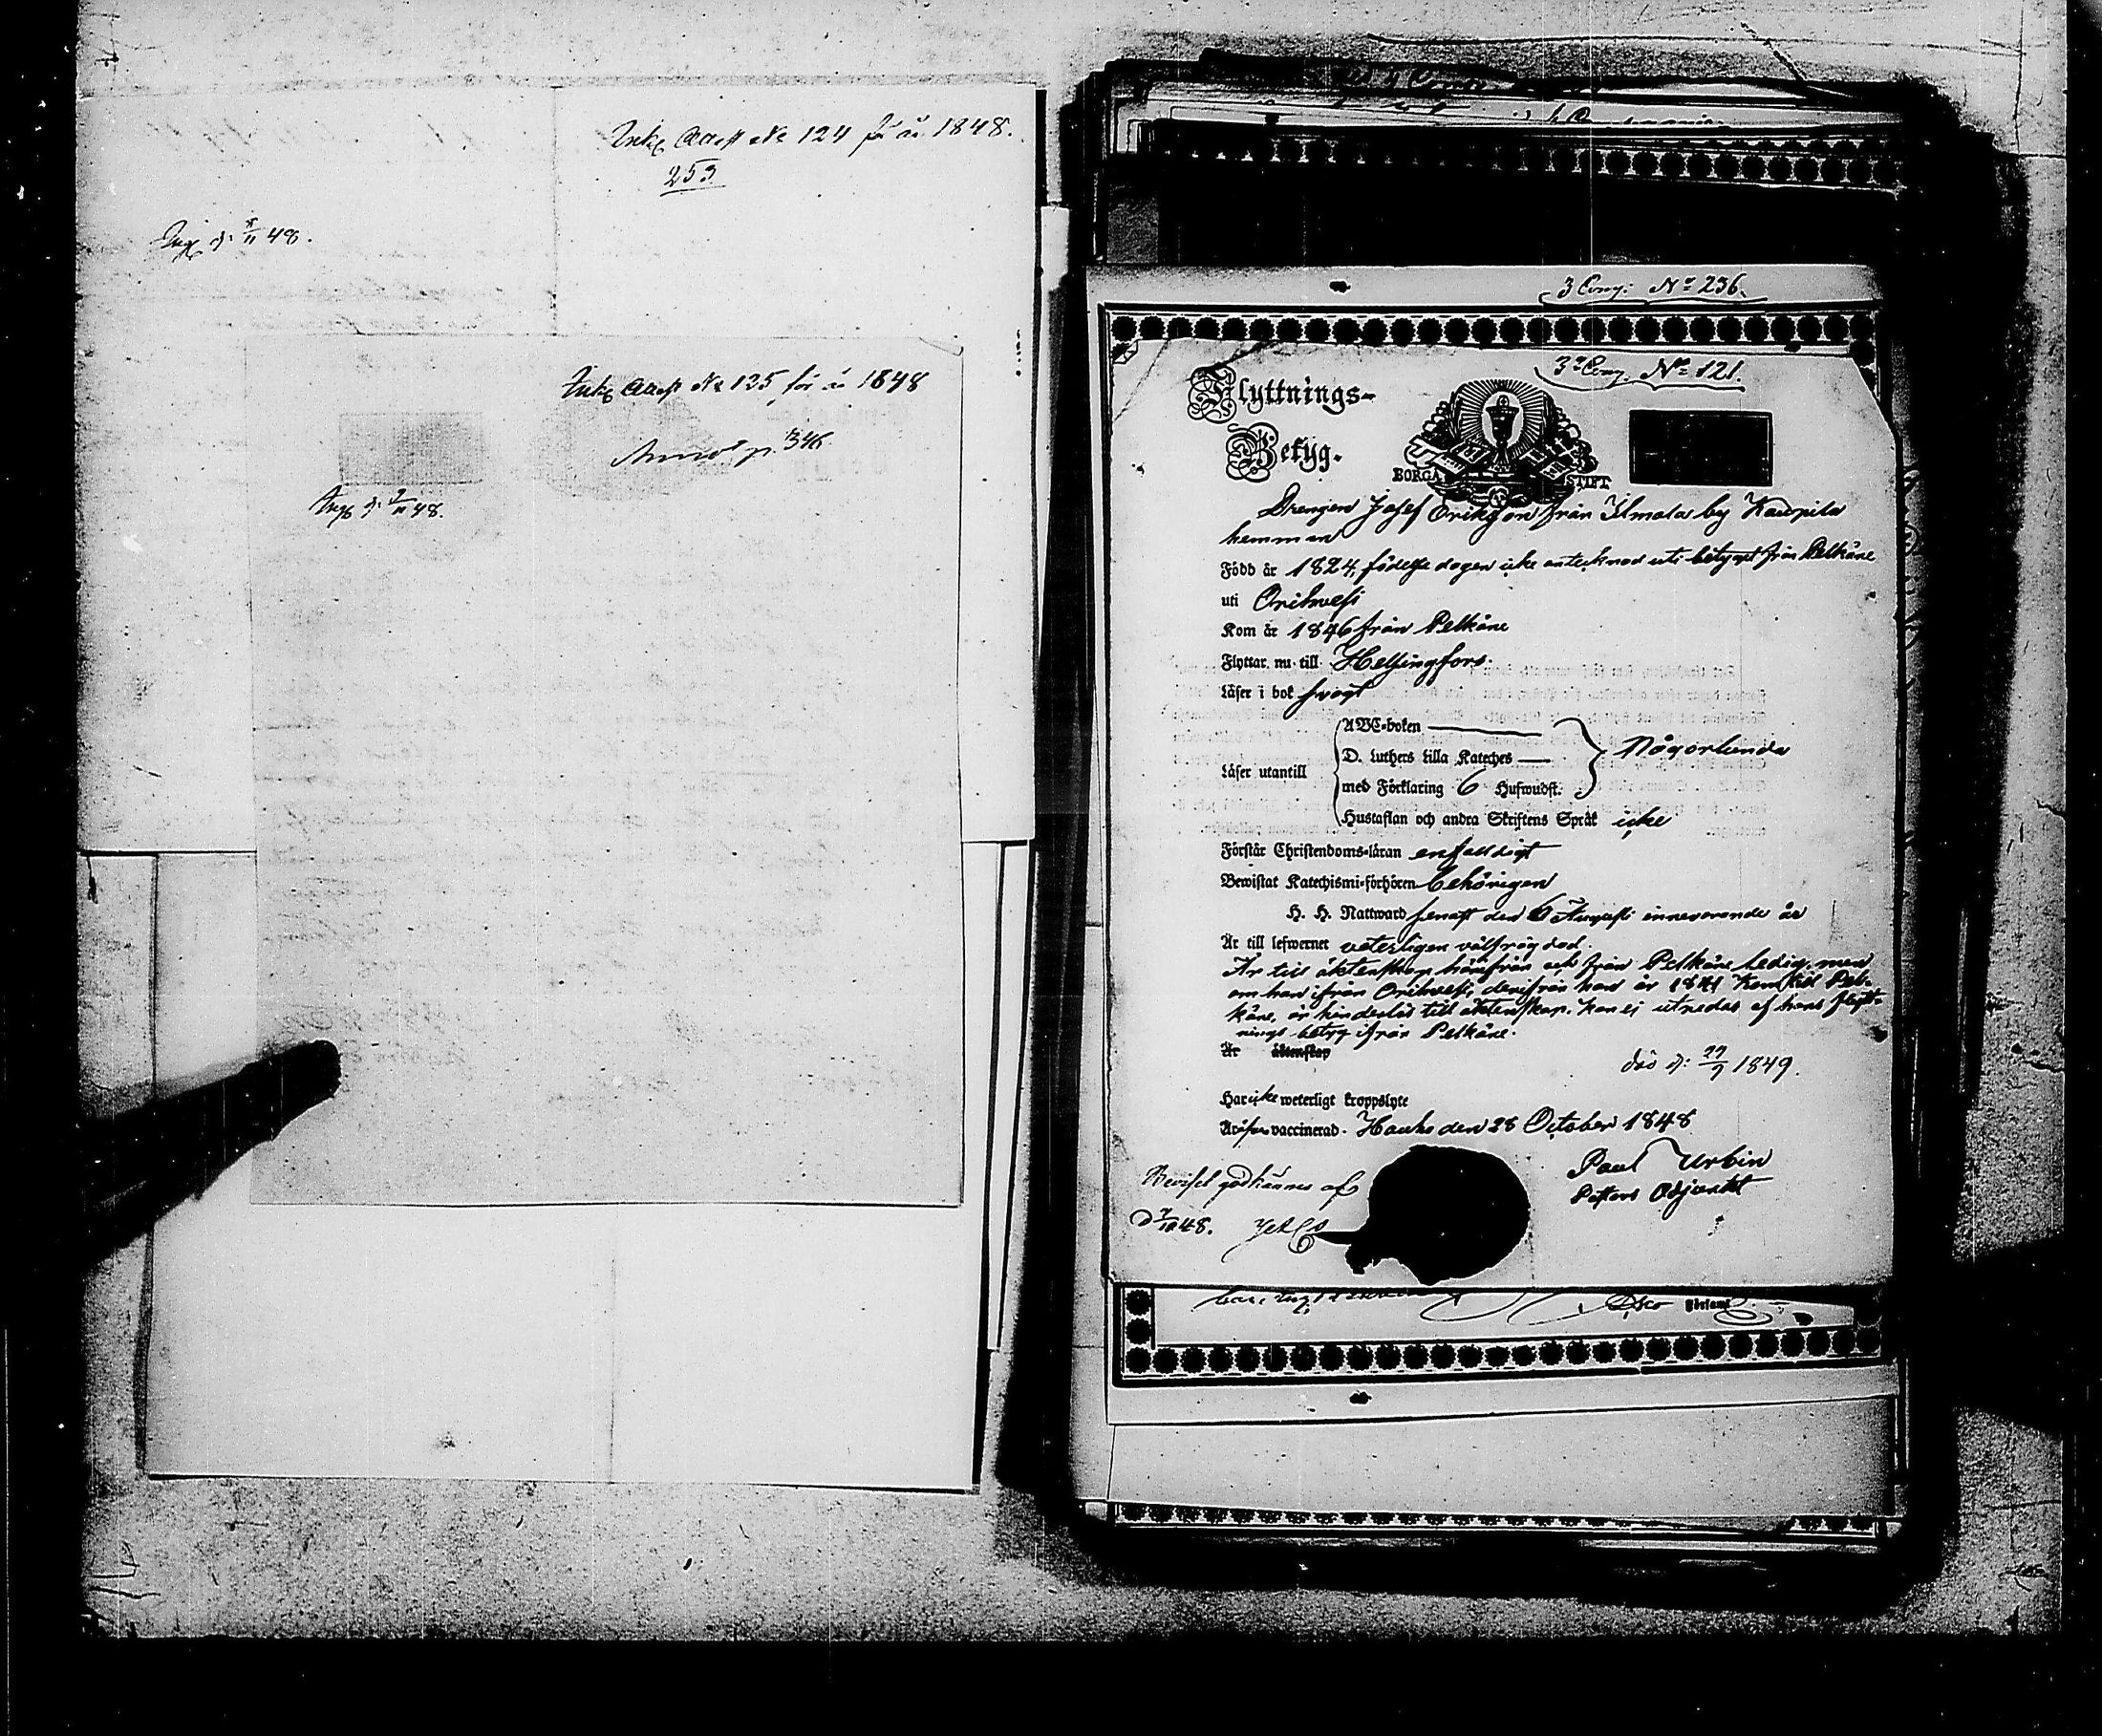 Ink. Attest No 124 för år 1848.
253
Ing. d: 48.
Ink. Attest No 125 för år 1848
p. 346
Ing. d: 48.
3 Cong: No 236.
3 Cong. No 121.
Flyttnings-
Betyg.
BORGÅ STIFT
Drengen Josef Eriksson från Ilmola by Kauppila
hemman
Född år 1824, födelse dagen icke antecknad uti betyget från Pelkäne
uti Orihvesi
Kom år 1846 från Pelkäne
Flyttar nu till Helsingfors.
Läser i bok svagt
ABC-boken
D. Luthers Lilla Kateches
Någorlunda
Läser utantill
med Förklaring 6 Hufwudst.
Hustaflan och andra Skriftens Språk icke
Förstår Christendoms-läran enfaldigt
Bewistat Katechismi-förhören behörigen
H. H. Nattward senast den 6 Augusti innevarande år
Är till lefwernet veterligen välfrägdad.
Är till äktenskap härifrån och från Pelkäne ledig, men
om han ifrån Orihvesi, derifrån han år 1841 kom till Pel-
käne, är hinderlös till äktenskap, kan ej utredas af hans flytt-
nings betyg ifrån Pelkäne.
Är äktenskap
dös d: 1849.
Har icke weterligt kroppslyte
Är vaccinerad. Hauho den 28 October 1848
Paul Urbin
Pastors Adjunct
Beviset godkännes af
48.